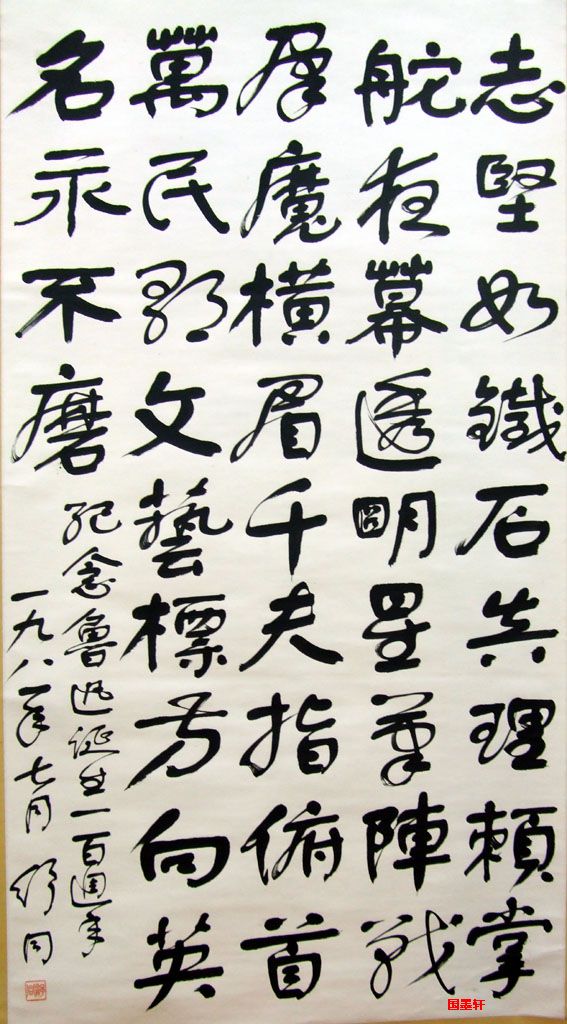 志堅如鐵石真理賴掌
舵夜幕透明星筆陣戰
群魔橫眉千夫指俯首
萬民歌文藝標方向英
名永不磨
紀念魯迅誕生一百週年
一九八一年七月 舒同
国墨轩